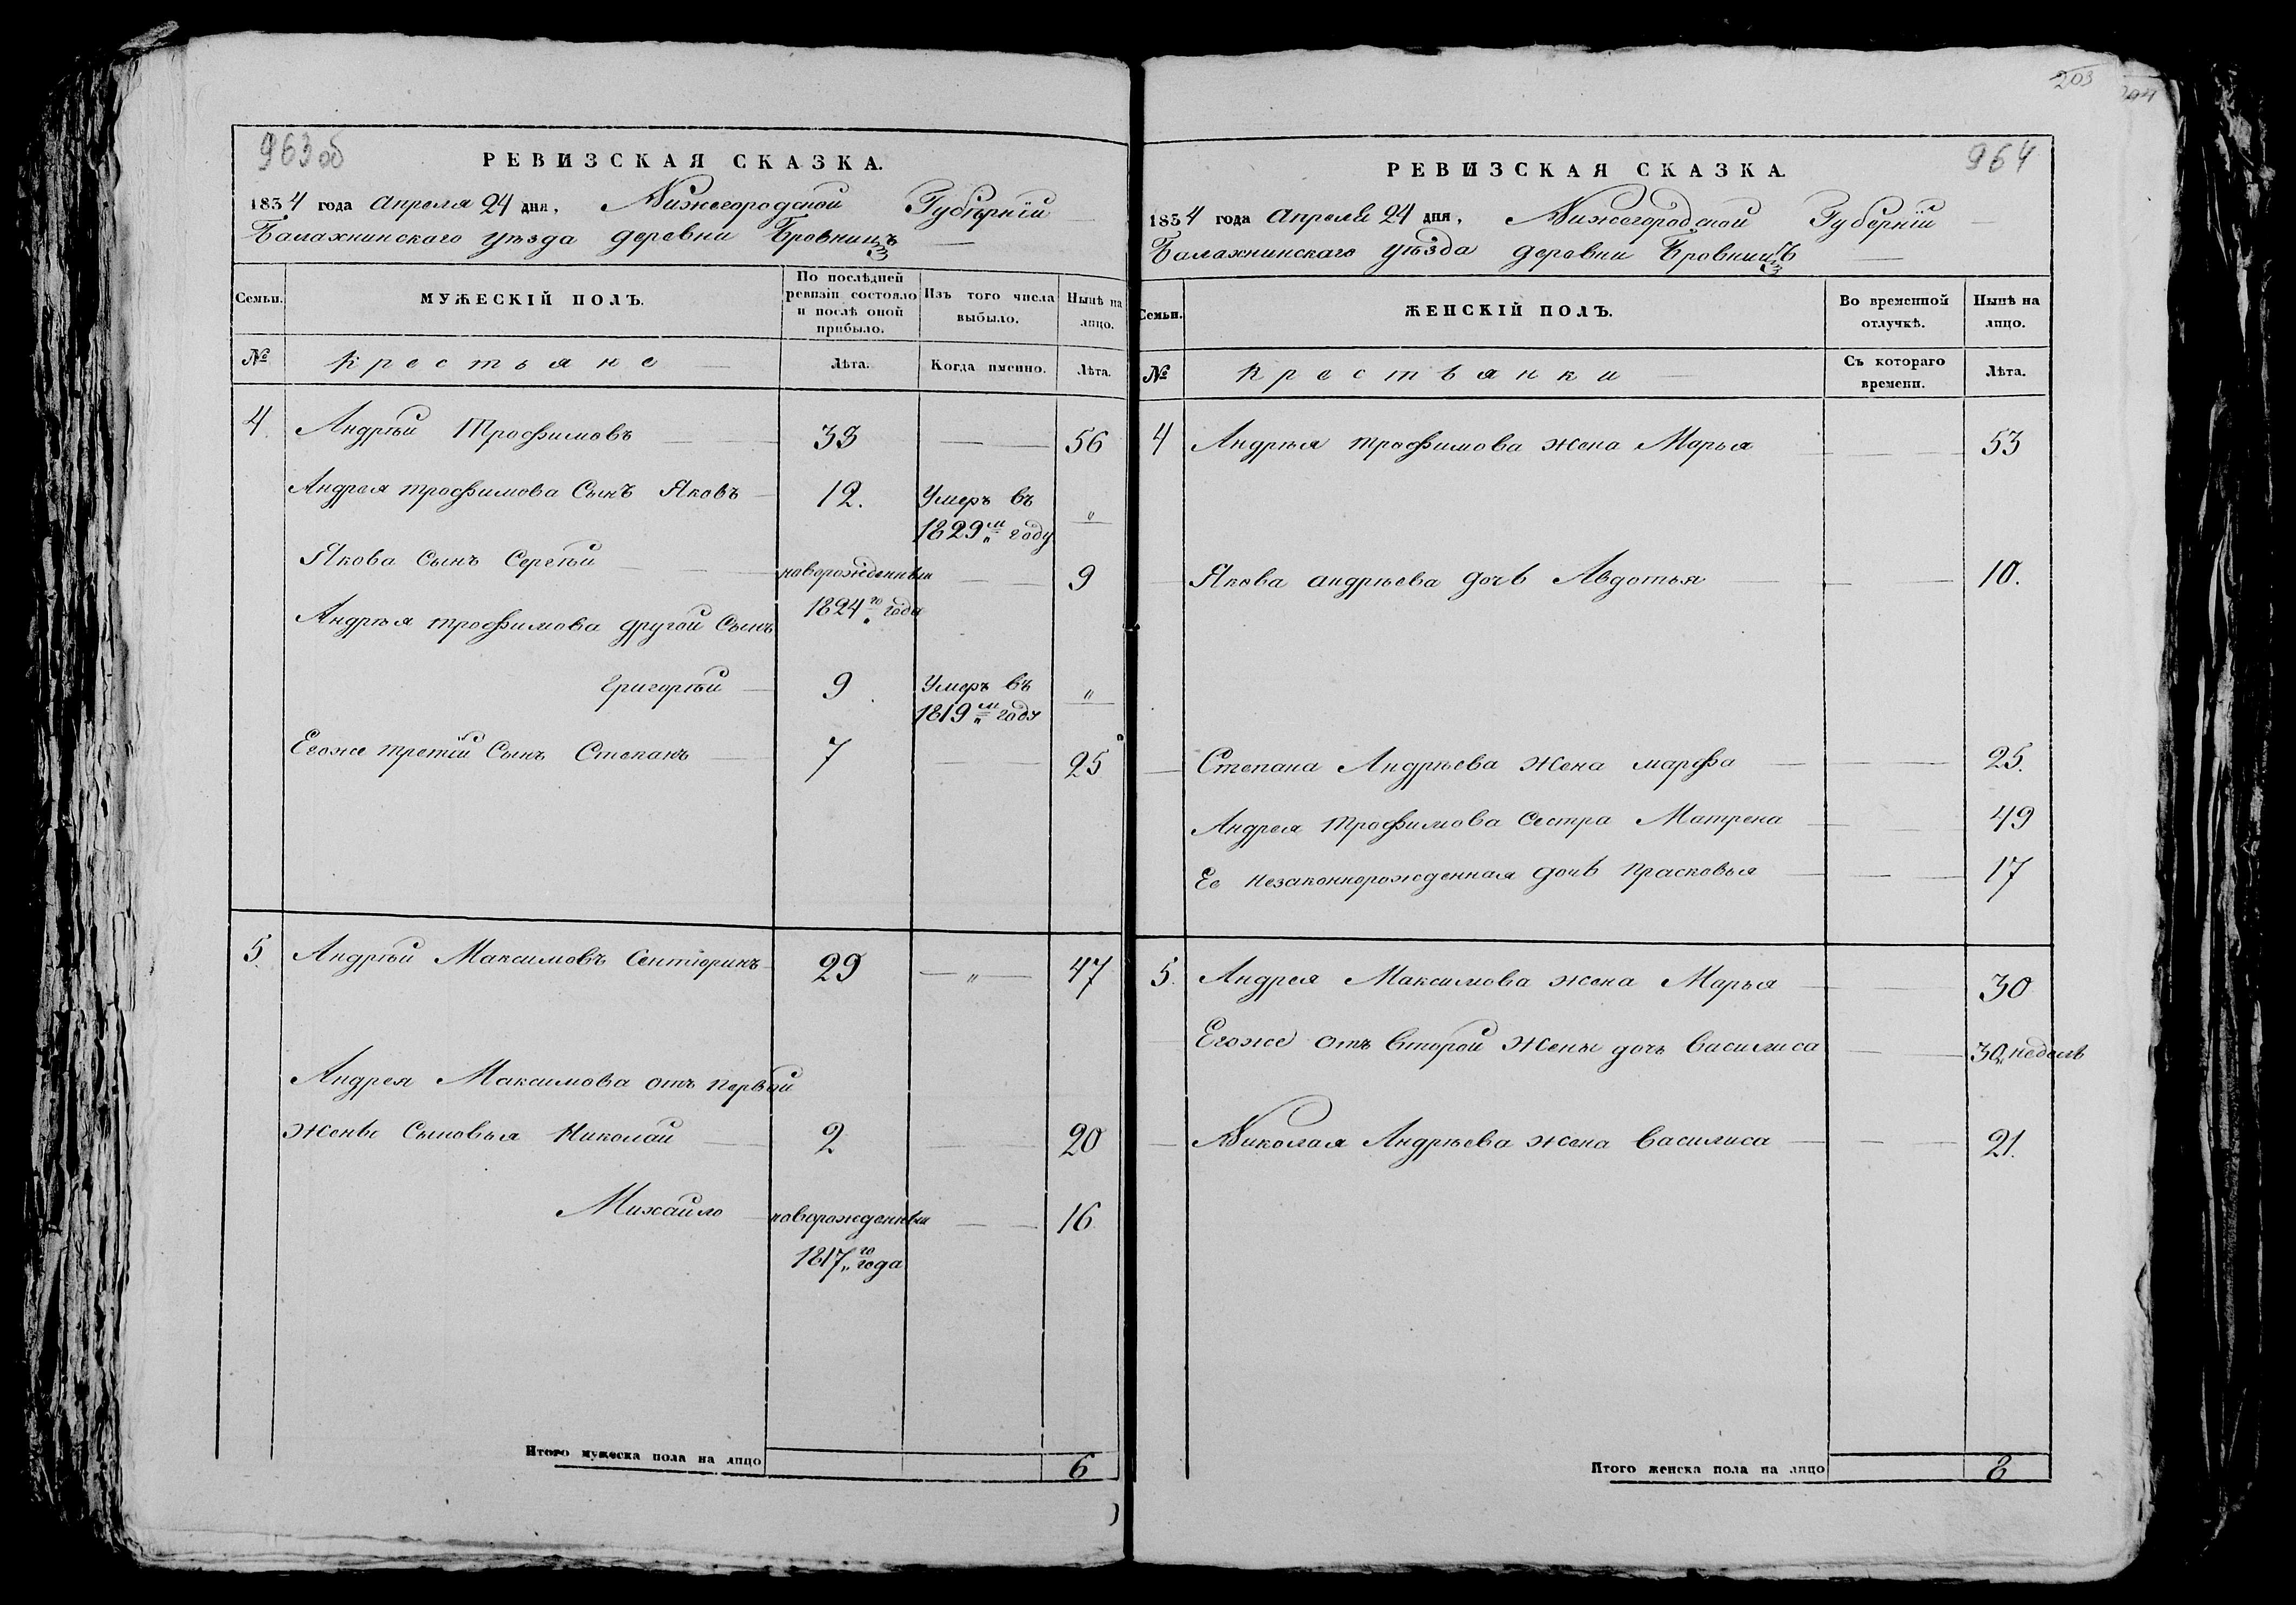 963 об
РЕВИЗСКАЯ СКАЗКА.
1834 года апреля 24 дня, Нижегородской Губернїи
Балахнинскаго уѣзда деревни Бровницъ
Семьи. МУЖЕСКІЙ ПОЛЪ. По послѣдней ревизіи состояло и послѣ оной прибыло. Изъ того числа выбыло. Нынѣ на лицо.
№ Крестьяне Лѣта. Когда именно. Лѣта.
4. Андрѣй Трофимовъ 38 56
Андрея трофимова Сынъ Яковъ 12. Умеръ въ 1829м году "
Якова Сынъ Сергѣй новорожденный 1824го года 9
Андрѣя трофимова другой Сынъ
Григорѣй 9 Умеръ въ 1819м году "
Егоже третїй Сынъ Степанъ 7 25
5. Андрѣй Максимовъ Сентюринъ 29 " 47
Андрея Максимова отъ первый
жены Сыновья Николай 2 20
Михайло новорожденный 1817го года 16
Итого мужеска пола на лицо 6
203
204
964
РЕВИЗСКАЯ СКАЗКА.
1834 года апреля 24 дня, Нижегородской Губернїи
Балахнинскаго уѣзда деревни Бровницъ
Семьи. ЖЕНСКІЙ ПОЛЪ. Во временной отлучкѣ. Нынѣ на лицо.
№ Крестьянки Съ котораго времени. Лѣта.
4 Андрѣя трофимова жена Марья 53
Якова андрѣева дочь Авдотья 10.
Степана Андрѣева жена марфа 25.
Андрея трофимова сестра Матрена 49
Ее незаконнорожденная дочь прасковья 17
5. Андрея Максимова жена Марья 30
Егоже отъ второй жены дочь василиса 30 недель
Николая Андрѣева жена василиса 21.
Итого женска пола на лицо 8